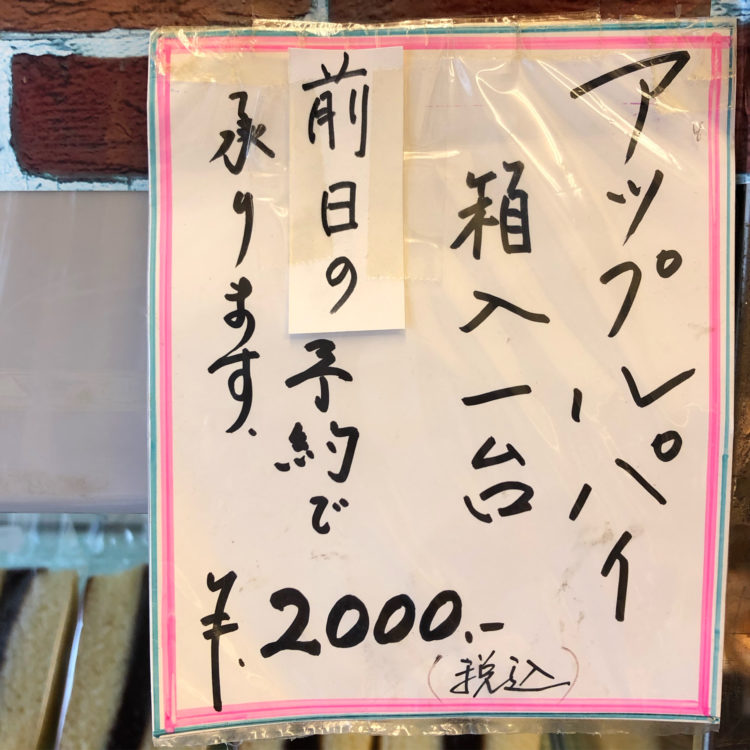 アップルパイ
箱入一台
前日の予約で
承ります.
¥.2000.-
(税込)